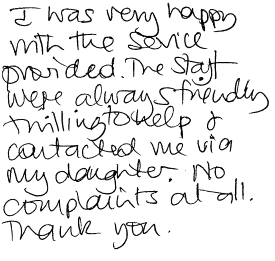 I was very happy
with the Service
provided. The Staff
were always friendly
& willing to help &
contacted me via
my daughter. No
complaints at all.
Thank you.